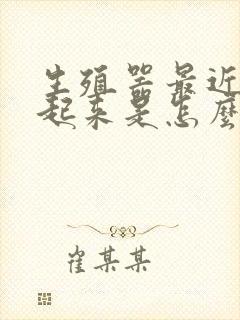 生殖器最近
起来是怎麼
崔某某